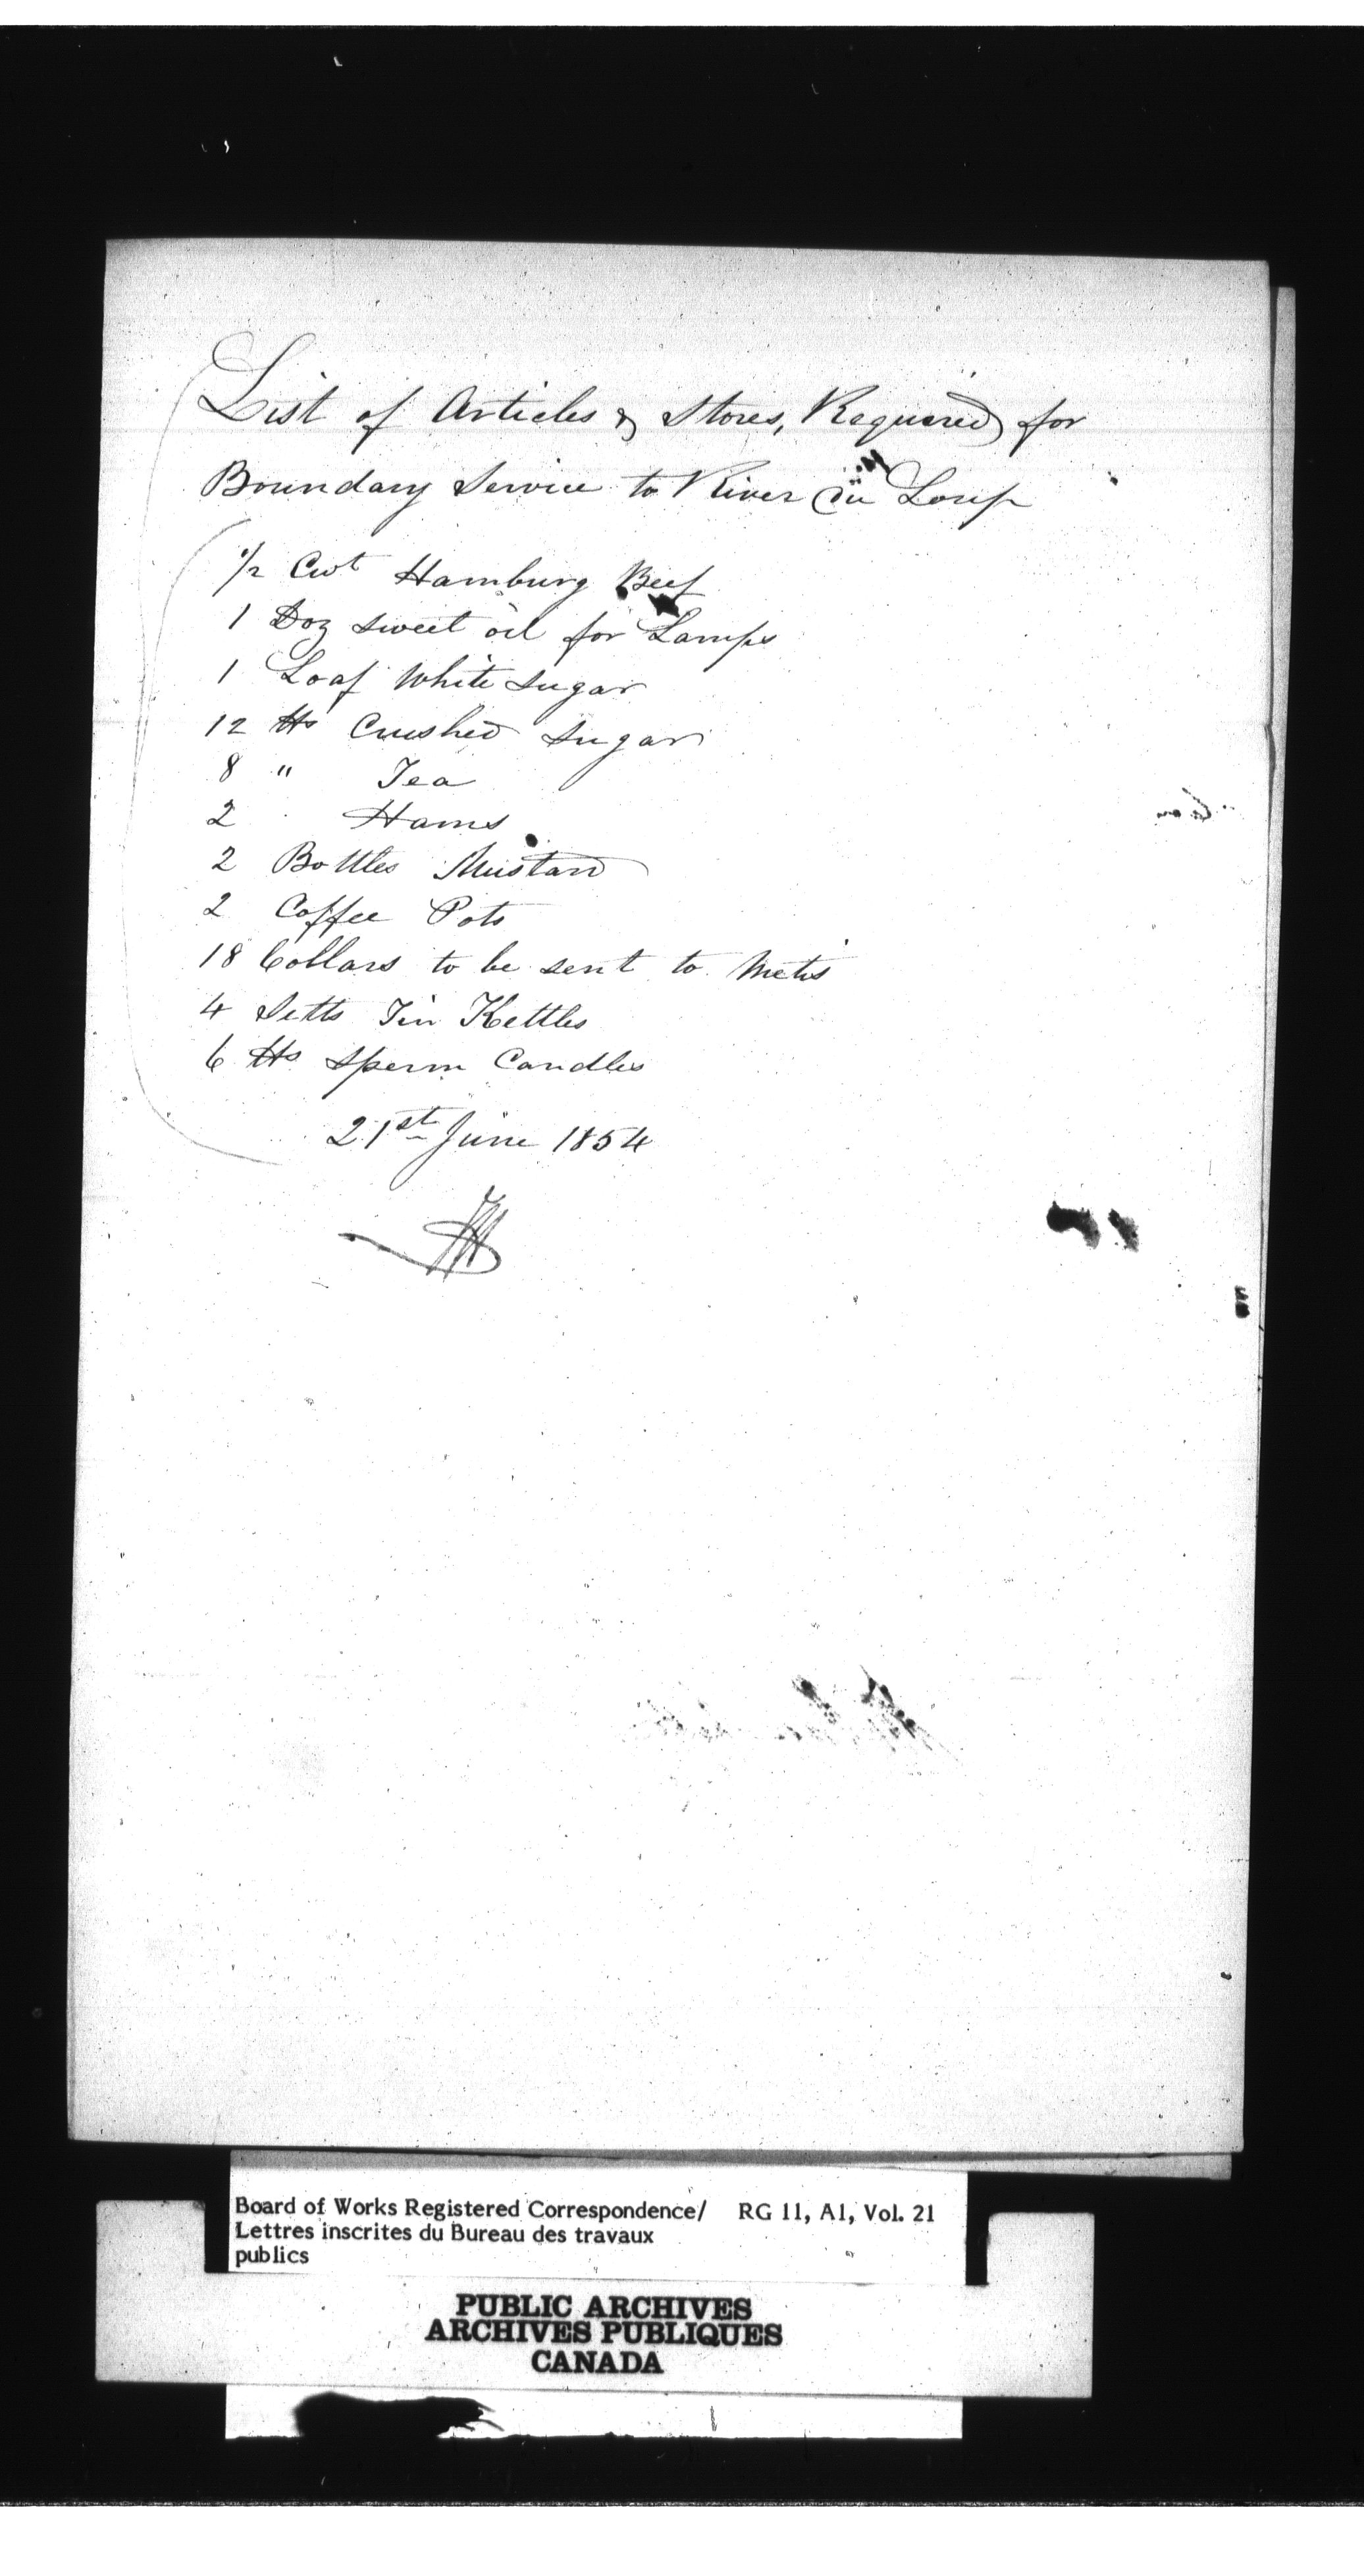 List of Articles & Stores, Required for
Boundary Service to River du Loup
1/2 Cwt Hamburg Beef
1 Doz sweet oil for Lamps
1 Loaf White Sugar
12 lbs Crushed Sugar
8 " Tea
2 Hams
2 Bottles Mustard
2 Coffee Pots
18 Collars to be sent to Metis
4 Setts Tin Kettles
6 lbs Sperm Candles
21st June 1854
Board of Works Registered Correspondence/ RG 11, A1, Vol. 21
Lettres inscrites du Bureau des travaux
publics
PUBLIC ARCHIVES
ARCHIVES PUBLIQUES
CANADA